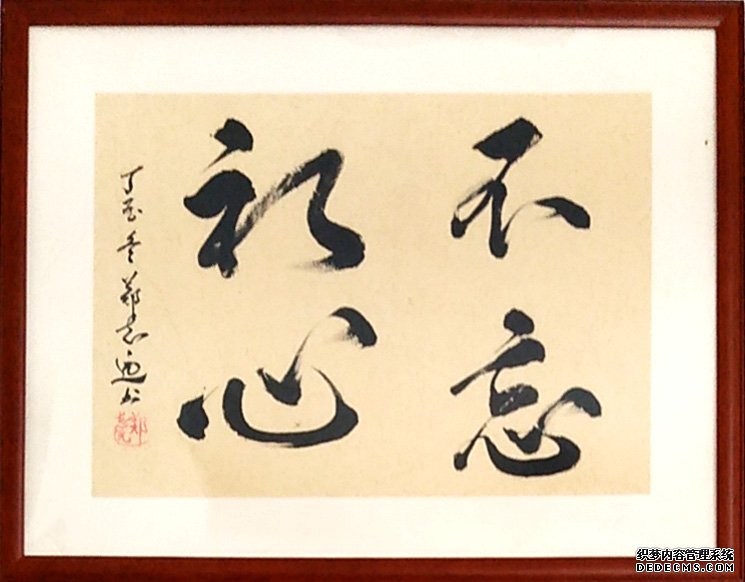 不忘
初心
丁酉冬 鄭志书
织梦内容管理系统
DEDECMS.COM